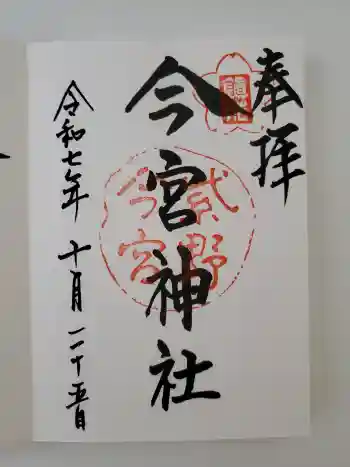 奉拝
今宮神社
貮野
今宮
令和七年十月二十五日